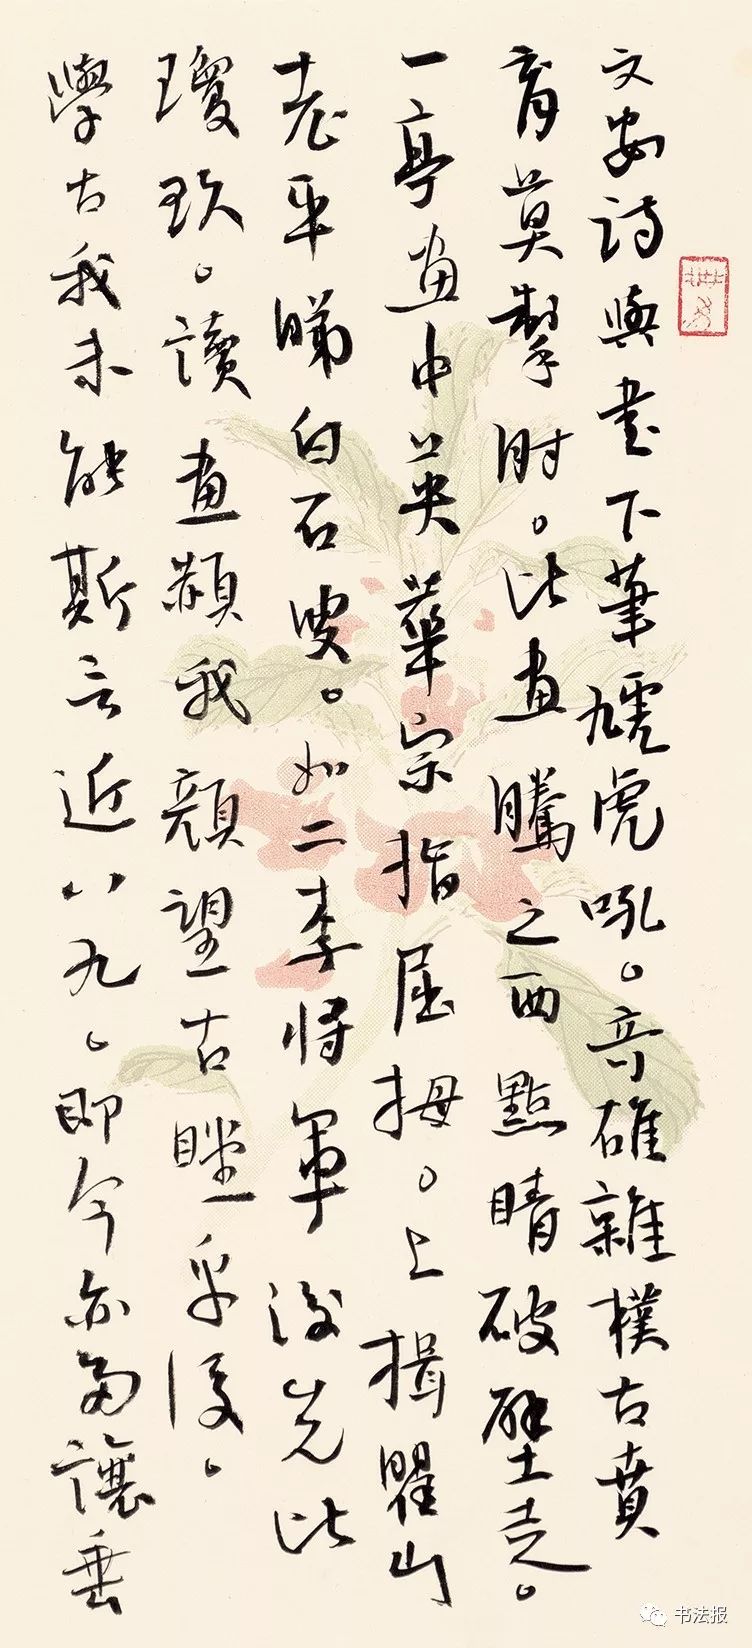 文安詩與書下筆虓虎吼。奇確雜樸古賁
育莫掣肘。此畫騰之西點睛破壁走。
一亭畫中英華宗指屈拇。上揖瞿山
老平睇白石叟。如二李將軍後先比
瓊玖。讀畫纇我顏望古瞠乎後。
學古我未能斯言近八九。即今亦多讓垂
书法报